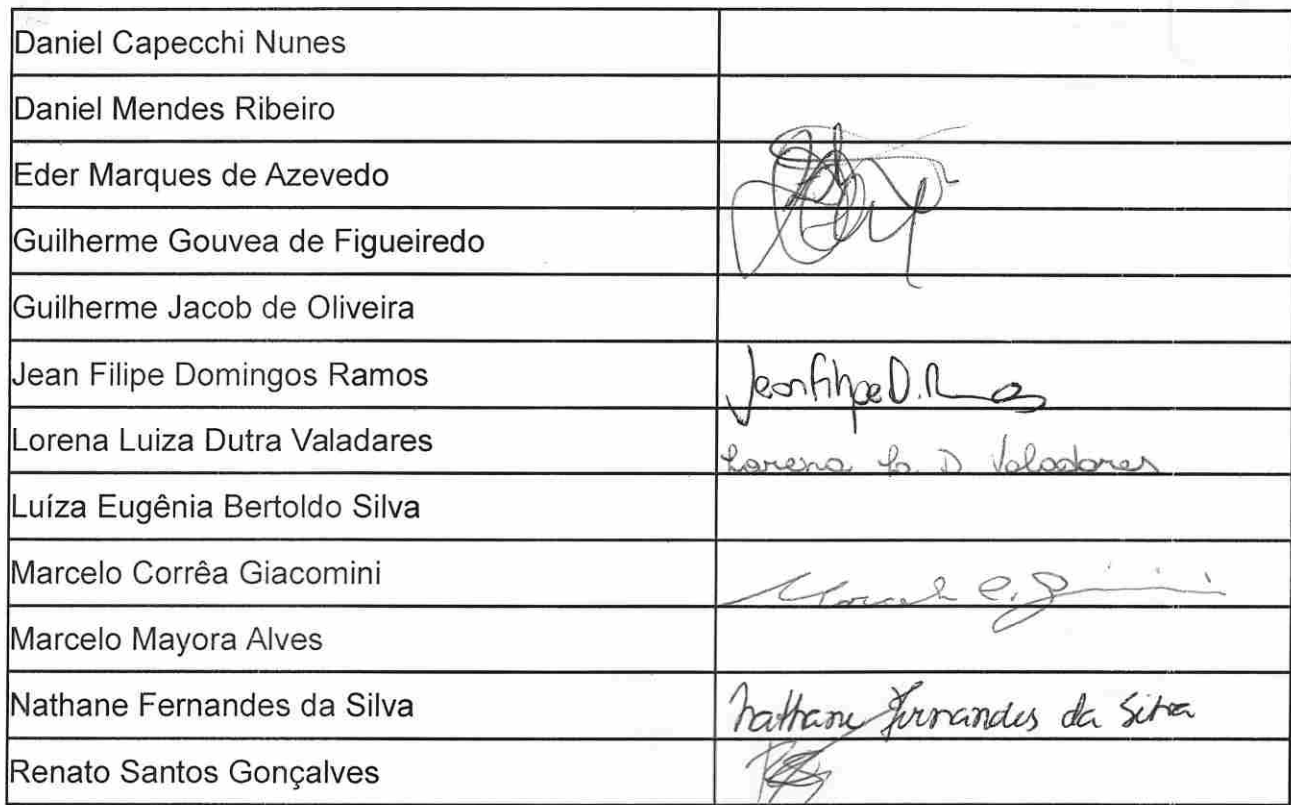 Daniel Capecchi Nunes
Daniel Mendes Ribeiro
Eder Marques de Azevedo
Guilherme Gouvea de Figueiredo
Guilherme Jacob de Oliveira
Jean Filipe Domingos Ramos
Jean Filipe D. R
Lorena Luiza Dutra Valadares
Lorena L. D Valadares
Luíza Eugênia Bertoldo Silva
Marcelo Corrêa Giacomini
Marcelo C. G
Marcelo Mayora Alves
Nathane Fernandes da Silva
Nathane Fernandes da Silva
Renato Santos Gonçalves